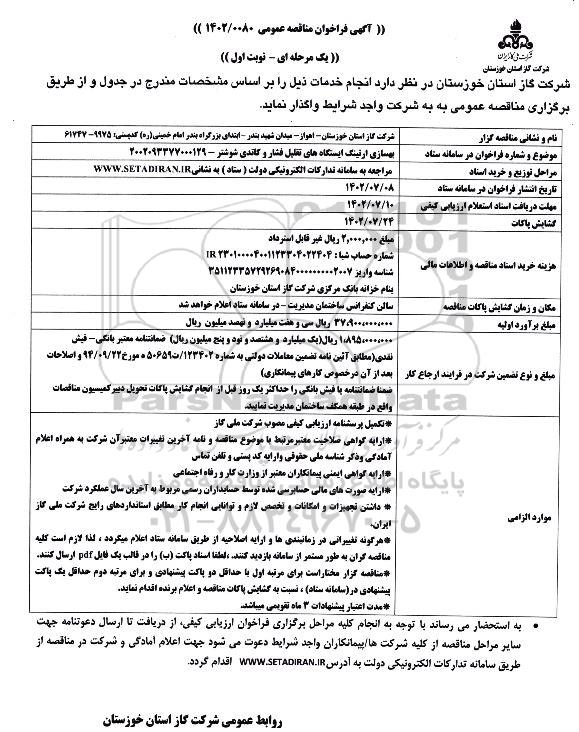 (( آگهی فراخوان مناقصه عمومی ۱۴۰۲/۰۰۸۰ ))
((یک مرحله ای - نوبت اول ))
شرکت ملی گاز ایران
شرکت گاز استان خوزستان
شرکت گاز استان خوزستان در نظر دارد انجام خدمات ذیل را بر اساس مشخصات مندرج در جدول و از طریق
برگزاری مناقصه عمومی به به شرکت واجد شرایط واگذار نماید.
نام و نشانی مناقصه گزار
شرکت گاز استان خوزستان- اهواز- میدان شهید بندر -ابتدای بزرگراه بندر امام خمینی(ره) کدپستی: ۹۹۷۵-۶۱۷۴۷
موضوع و شماره فراخوان در سامانه ستاد
بهسازی ارتینگ ایستگاه های تقلیل فشار و کاتدی شوشتر - ۲۰۰۲۰۹۳۳۷۷۰۰۰۱۲۹
مراحل توزیع و خرید اسناد
مراجعه به سامانه تدارکات الکترونیکی دولت ( ستاد ) به نشانی WWW.SETADIRAN.IR
تاریخ انتشار فراخوان در سامانه ستاد
۱۴۰۲/۰۷/۰۸
مهلت دریافت اسناد استعلام ارزیابی کیفی
۱۴۰۲/۰۷/۱۰
گشایش پاکات
۱۴۰۲/۰۷/۲۴
هزینه خرید اسناد مناقصه و اطلاعات مالی
مبلغ ۲,۰۰۰,۰۰۰ ریال غیر قابل استرداد
شماره حساب شبا : IR ۲۳۰۱۰۰۰۰۴۰۰۱۱۲۳۳۰۴۰۲۲۴۰۴
شناسه واریز ۳۵۱۱۲۳۳۵۷۲۹۲۶۹۰۸۴۰۰۰۰۰۰۰۰۰۰۲۰۰۷
بنام خزانه بانک مرکزی شرکت گاز استان خوزستان
مکان و زمان گشایش پاکات مناقصه
سالن کنفرانس ساختمان مدیریت - در سامانه ستاد اعلام خواهد شد
مبلغ برآورد اولیه
۳۷,۹۰۰,۰۰۰,۰۰۰ ریال سی و هفت میلیارد و نهصد میلیون ریال
مبلغ و نوع تضمین شرکت در فرایند ارجاع کار
۱,۸۹۵,۰۰۰,۰۰۰ ریال(یک میلیارد و هشتصد و نود و پنج میلیون ریال) ضمانتنامه معتبر بانکی- فیش
نقدی(مطابق آئین نامه تضمین معاملات دولتی به شماره ۱۲۳۴۰۲/ت۵۰۶۵۹ه مورخ۹۴/۰۹/۲۲ و اصلاحات
بعد از آن درخصوص کارهای پیمانکاری)
ضمنا ضمانتنامه یا فیش بانکی را حداکثر یک روز قبل از انجام گشایش پاکات تحویل دبیرکمیسیون مناقصات
واقع در طبقه همکف ساختمان مدیریت نمایید.
موارد الزامی
*تکمیل پرسشنامه ارزیابی کیفی مصوب شرکت ملی گاز
*ارایه گواهی صلاحیت معتبرمرتبط با موضوع مناقصه و نامه آخرین تغییرات معتبرآن شرکت به همراه اعلام
آمادگی وذکر شناسه ملی حقوقی وارایه کد پستی و تلفن تماس
*ارایه گواهی ایمنی پیمانکاران معتبر از وزارت کار و رفاه اجتماعی
*ارایه صورت های مالی حسابرسی شده توسط حسابداران رسمی مربوط به آخرین سال عملکرد شرکت
* داشتن تجهیزات و امکانات و تخصص لازم و توانایی انجام کار مطابق استانداردهای رایج شرکت ملی گاز
ایران.
*هرگونه تغییراتی در زمانبندی ها و ارایه اصلاحیه از طریق سامانه ستاد اعلام میگردد ، لذا لازم است کلیه
مناقصه گران به طور مستمر از سامانه بازدید کنند. ،لطفا اسناد پاکت (ب) را در قالب یک فایل pdf ارسال کنند.
*مناقصه گزار مختاراست برای مرتبه اول با حداقل دو پاکت پیشنهادی و برای مرتبه دوم حداقل یک پاکت
پیشنهادی در(سامانه ستاد) ، نسبت به گشایش پاکات مناقصه و اعلام برنده اقدام نماید.
*مدت اعتبار پیشنهادات ۳ ماه تقویمی میباشد.
• به استحضار می رساند با توجه به انجام کلیه مراحل برگزاری فراخوان ارزیابی کیفی، از دریافت تا ارسال دعوتنامه جهت
سایر مراحل مناقصه از کلیه شرکت ها/پیمانکاران واجد شرایط دعوت می شود جهت اعلام آمادگی و شرکت در مناقصه از
طریق سامانه تدارکات الکترونیکی دولت به آدرس WWW.SETADIRAN.IR اقدام گردد.
روابط عمومی شرکت گاز استان خوزستان